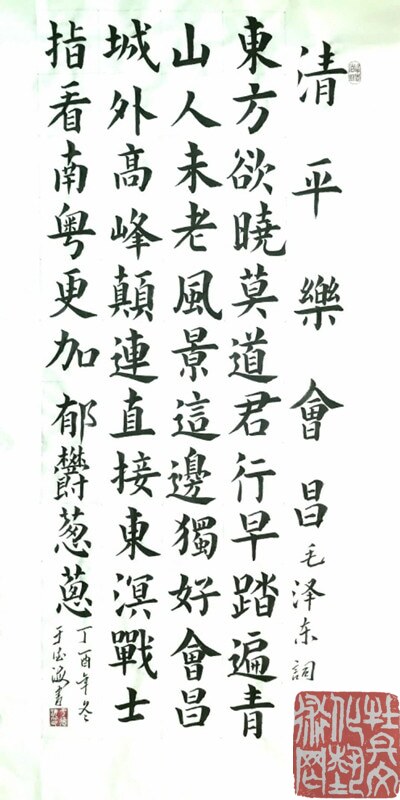 清平樂會昌毛泽东詞
東方欲曉莫道君行早踏遍青
山人未老風景這邊獨好會昌
城外高峰顛連直接東溟戰士
指看南粵更加郁欝葱葱
丁酉年冬
于海書